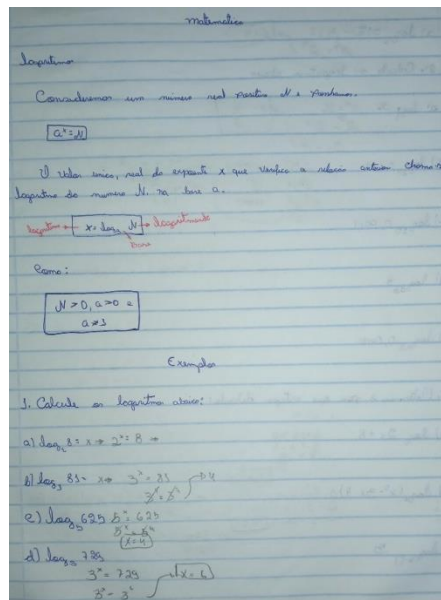 matemática
logaritmo
Consideremos um número real positivo N e ponhamos.
aˣ = N
O valor único, real do expoente x que verifica a relação anterior
logaritmo do numero N. na base a.
logaritmo ← x = logₐ N → logaritmando
base
Como:
N > 0, a > 0 =
a ≠ 1
Exemplos
1. Calcule os logaritmos abaixo:
a) log₂ 8 = x → 2ˣ = 8 →
b) log₃ 81 = x → 3ˣ = 81
3ˣ = 3⁴
c) log₅ 625 5ˣ = 625
5ˣ = 5⁴
x = 4
d) log₃ 729
3ˣ = 729 x = 6
3ˣ = 3⁶